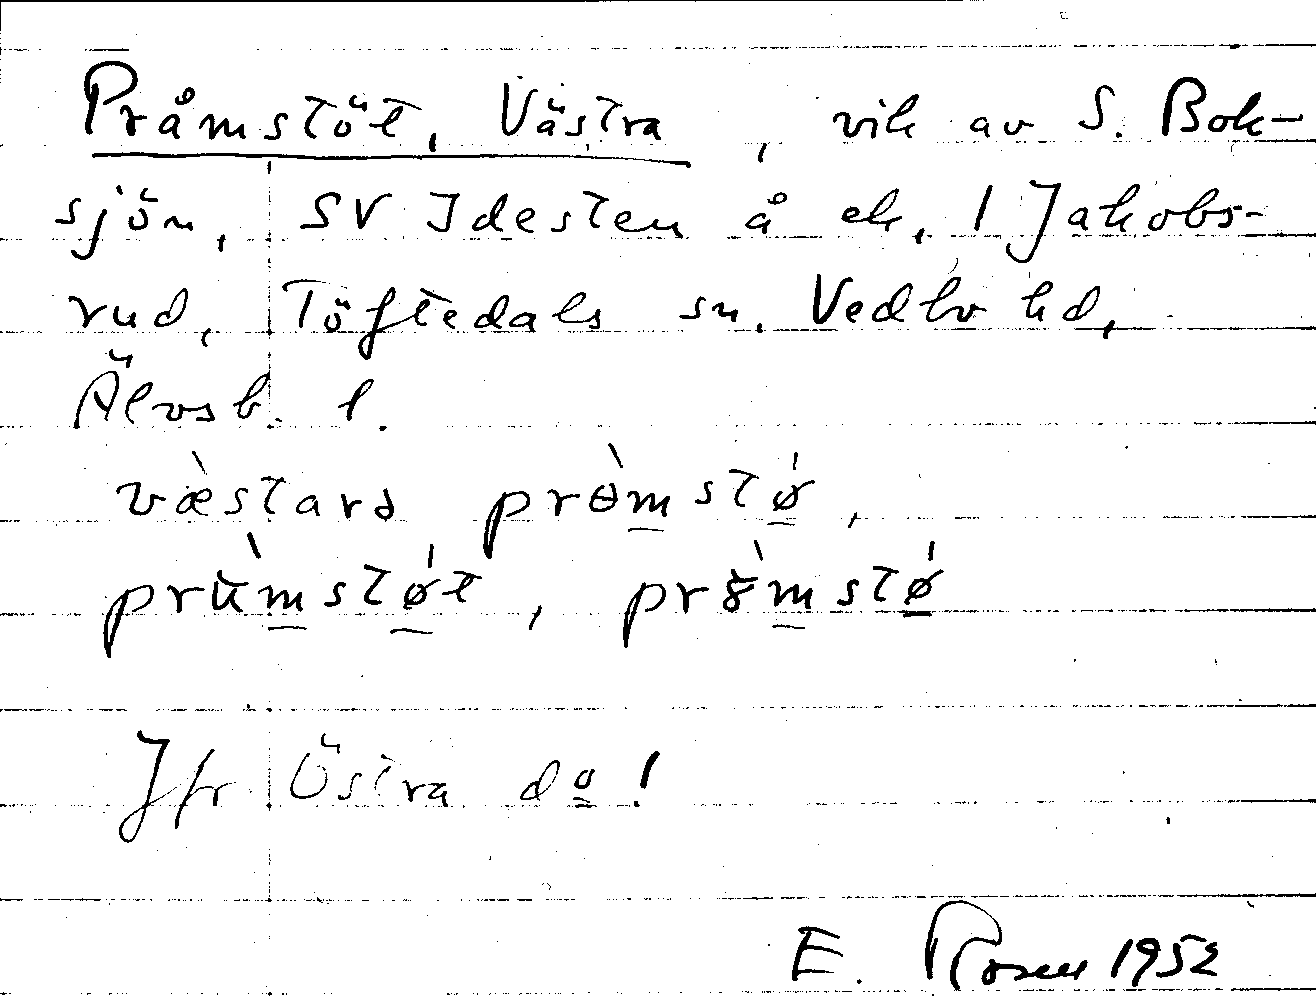 Pråmstöt, Västra, vik av S. Bok-
sjön, SV Idesten å ek, 1 Jakobs-
rud, Töftedals sn. Vedbo hd,
Älvsb. l.
væ̀stara prɵ̀mstǿ,
prùmstǿt, prø̀mstǿ
Jfr Östra do!
E. Rosen 1952